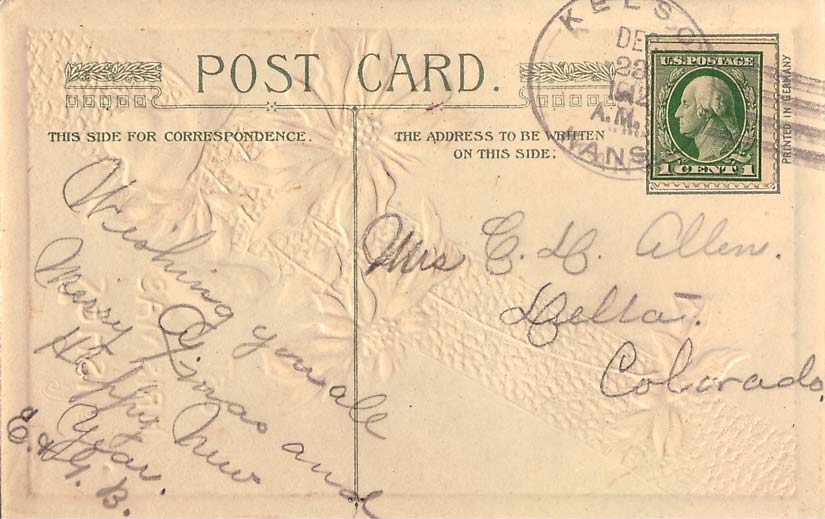 POST CARD.
THIS SIDE FOR CORRESPONDENCE.
THE ADDRESS TO BE WRITTEN
ON THIS SIDE.
KELSO
DEC
23
1912
A.M.
KANS
U.S. POSTAGE
1 CENT 1
PRINTED IN GERMANY
Wishing you all
Merry Xmas and
Happy New
Year.
E. & G. B.
Mrs E. L. Allen.
Delta.
Colorado.